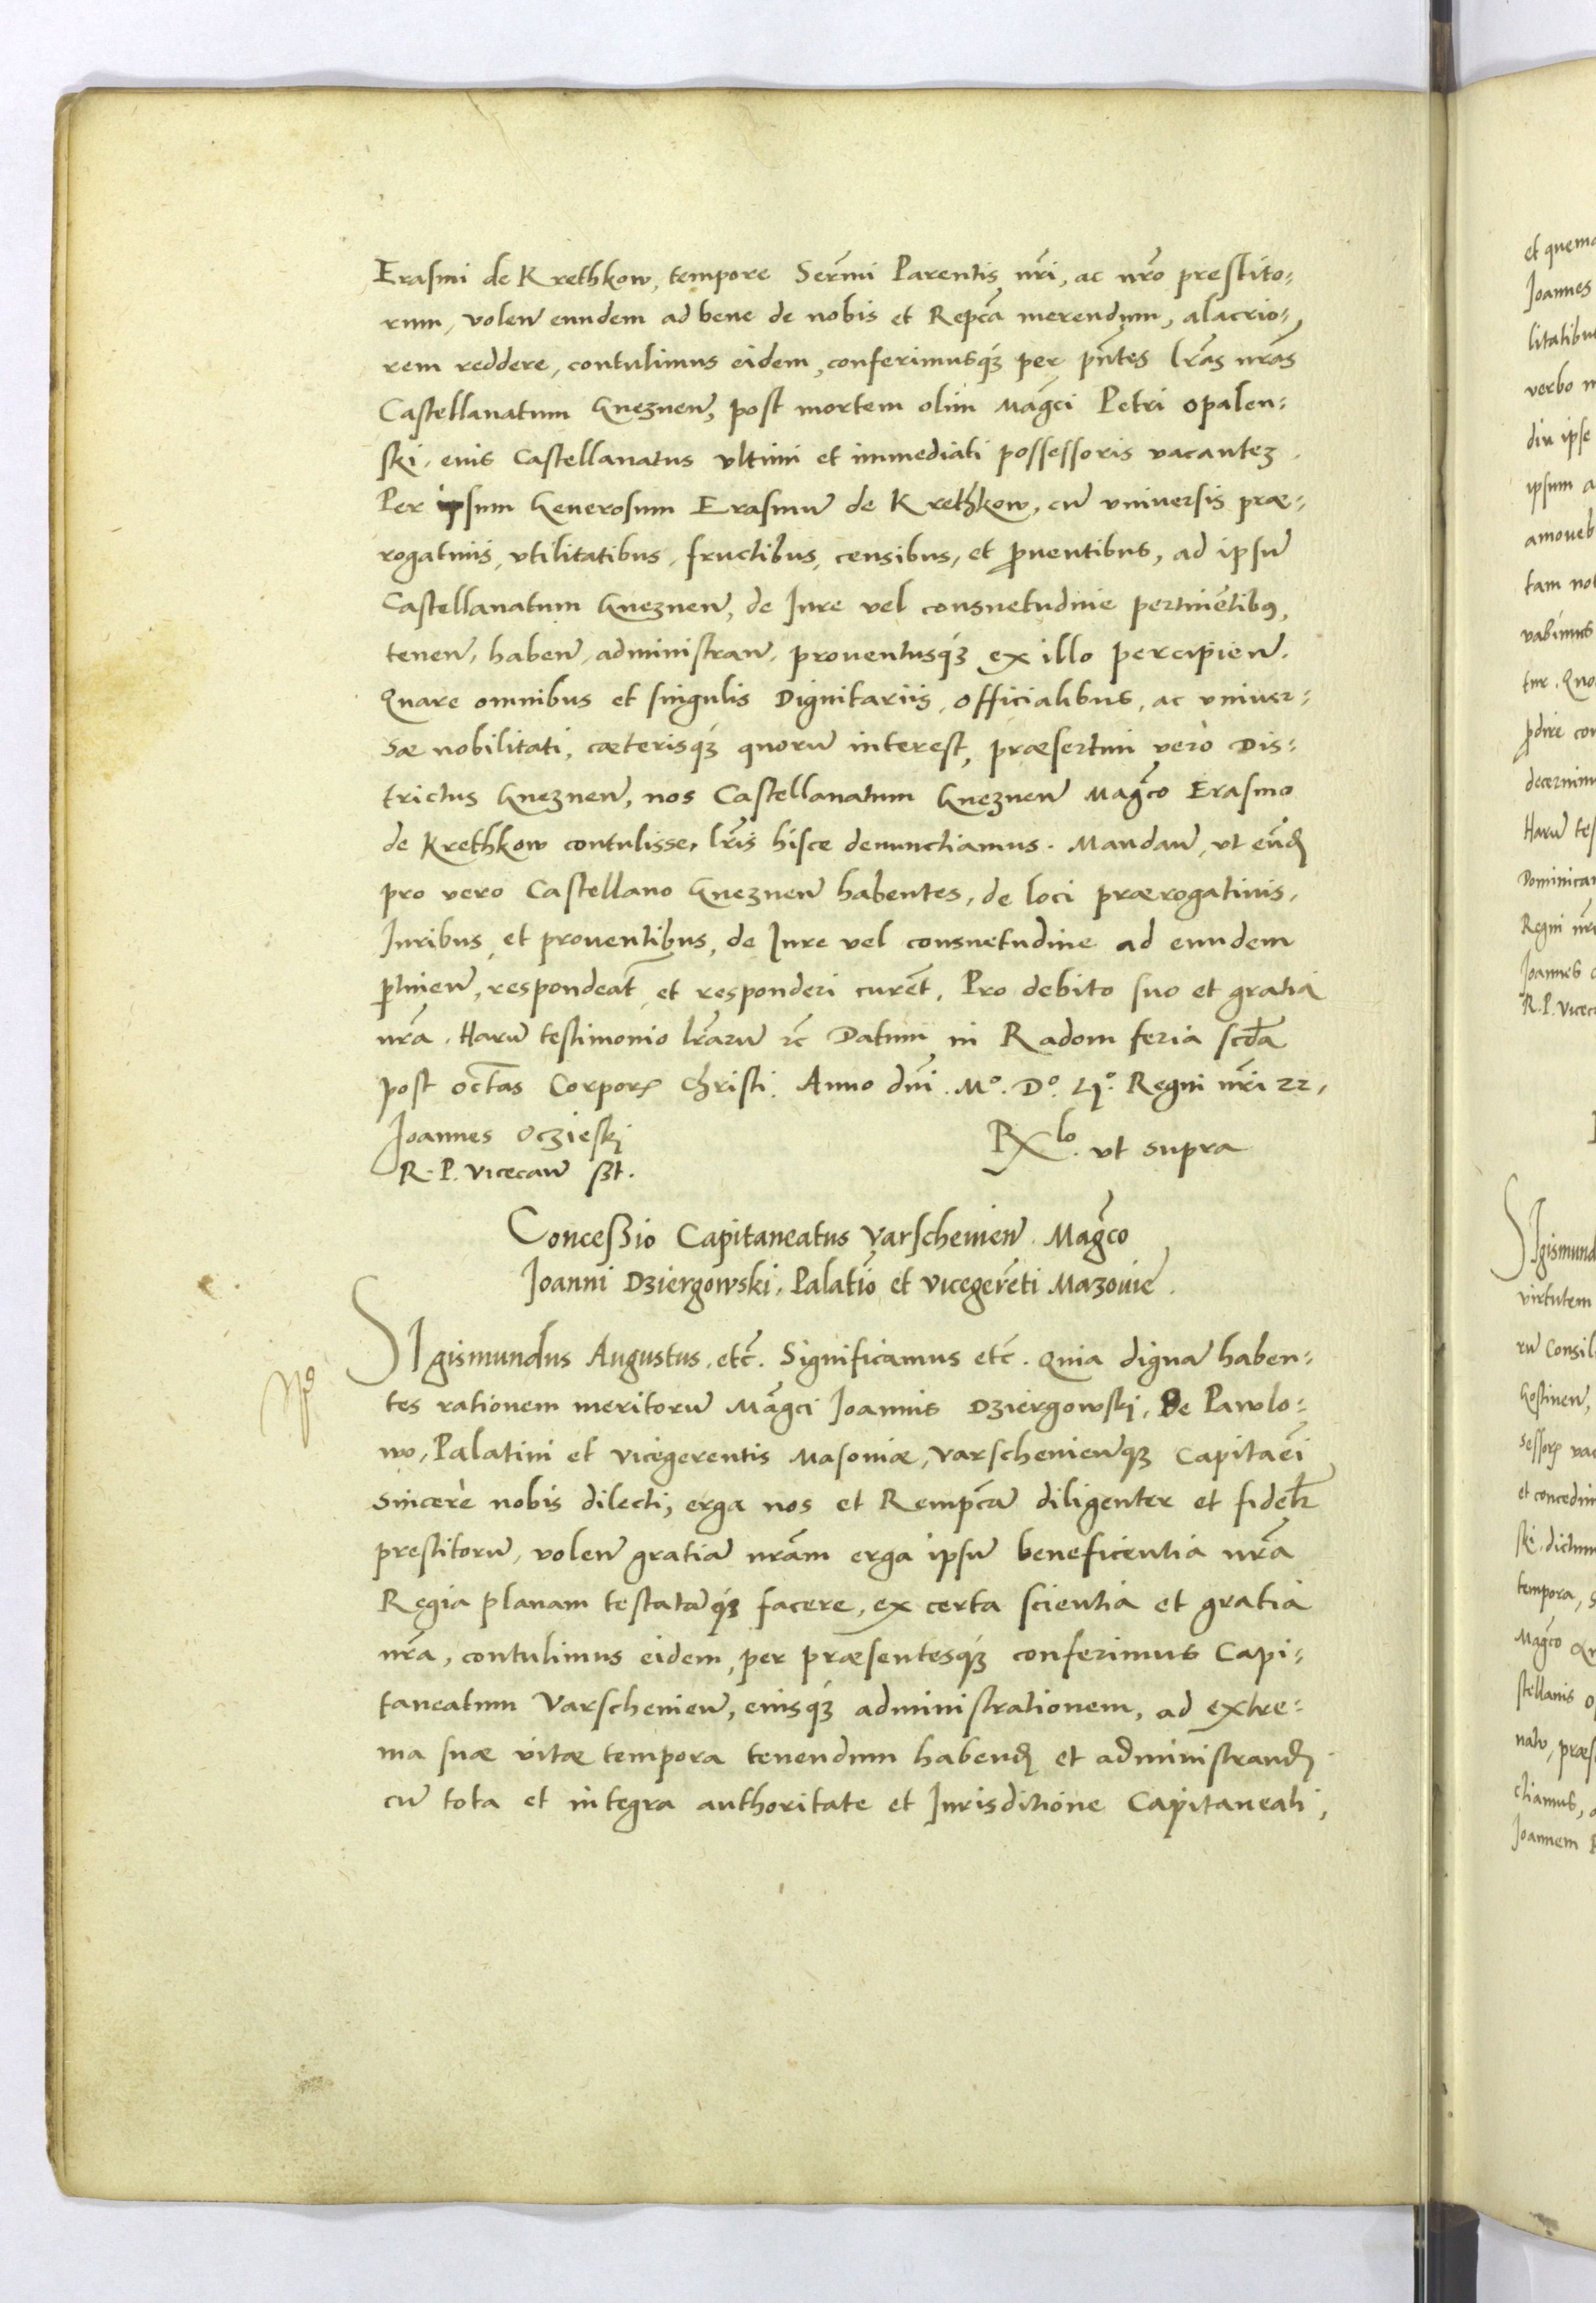 Erasmi de Krethkow, tempore Sermi Parentis nri, ac nro prestito=
rum, volen eundem ad bene de nobis et Repca merendum, alacrio=
rem reddere, contulimus eidem, conferimusq3 per pntes lras nras
Castellanatum Gneznen, post mortem olim Magci Petri Opalen=
ski, eius Castellanatus vltimi et immediati possessoris vacantez.
Per ipsum Generosum Erasmu de Krethkow, cu vniuersis præ=
rogatiuis, vtilitatibus, fructibus, censibus, et prouentibus, ad ipsu
Castellanatum Gneznen, de Iure vel consuetudine pertinetibus,
tenen, haben, administran, prouentusq3 ex illo percipien.
Quare omnibus et singulis Dignitariis, Officialibus, ac vniuer=
sæ nobilitati, cæterisq3 quoru interest, præsertim verò Dis=
trictus Gneznen, nos Castellanatum Gneznen Magco Erasmo
de Krethkow contulisse, lris hisce denunctiamus. Mandan, vt eund
pro vero Castellano Gneznen habentes, de loci prærogatiuis,
Iuribus, et prouentibus, de Iure vel consuetudine ad eundem
ptinen, respondeat, et responderi curet, Pro debito suo et gratia
nra. Haru testimonio lraru etc Datum in Radom feria scda
post octas Corporis Christi. Anno dni. Mo. Do. Lio. Regni nri 22,
Joannes Oczieski
R. P. Vicecan sst.
Rx lo. vt supra
Conceßio Capitaneatus Varschenien. Magco
Joanni Dziergowski, Palatio et vicegereti Mazouie.
SIgismundus Augustus, etc. Significamus etc. Quia digna haben=
tes rationem meritoru Magci Joannis Dziergowski, De Pawlo=
wo, Palatini et vicegerentis Masouiæ, Varschenienq3 Capitaei
sincerè nobis dilecti, erga nos et Rempca diligenter et fidelr
prestitoru, volen gratia nram erga ipsu beneficentia nra
Regia planam testataq3 facere, ex certa scientia et gratia
nra, contulimus eidem, per præsentesq3 conferimus Capi=
taneatum Varschenien, eiusq3 administrationem, ad extre=
ma suæ vitæ tempora tenendum habend et administrand
cu tota et integra authoritate et Jurisditione Capitaneali,